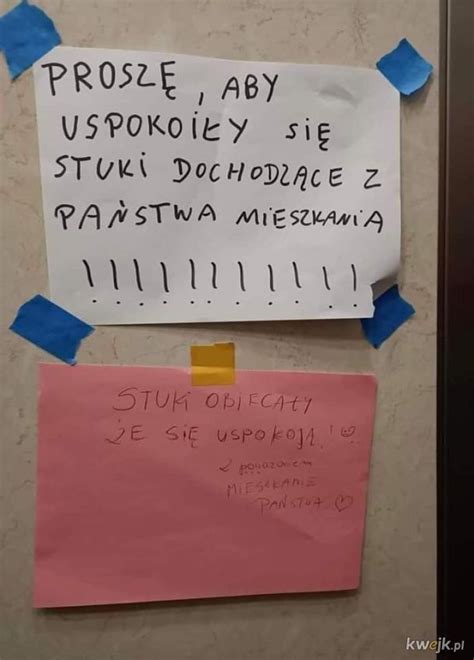 PROSZĘ, ABY
USPOKOIŁY SIĘ
STUKI DOCHODZĄCE Z
PAŃSTWA MIESZKANIA
!!!!!!!!!!!
STUKI OBIECAŁY
ŻE SIĘ USPOKOJĄ!
Z poważaniem
MIESZKANIE
PAŃSTWA ♡
kwejk.pl